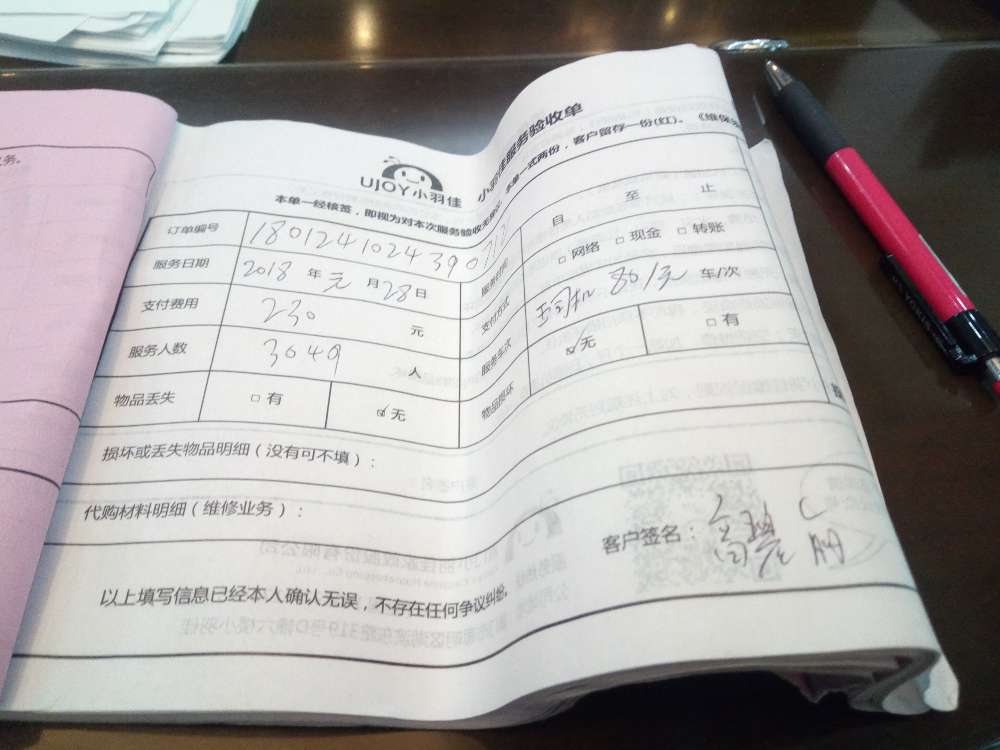 务。
UJOY小羽佳 小羽佳服务验收单
本单一经核签，即视为对本次服务验收无 本单一式两份，客户留存一份(红)。《维保
订单编号 18012410243901212 服务时间 自 至 止
服务日期 2018 年 元 月 28 日 支付方式 □ 网络 □ 现金 □ 转账
支付费用 230 元 服务车次 80/元 车/次
服务人数 3049 人 物品损坏 ☑ 无 □ 有
物品丢失 □ 有 ☑ 无
损坏或丢失物品明细（没有可不填）：
代购材料明细（维修业务）：
客户签名：
以上填写信息已经本人确认无误，不存在任何争议纠纷。